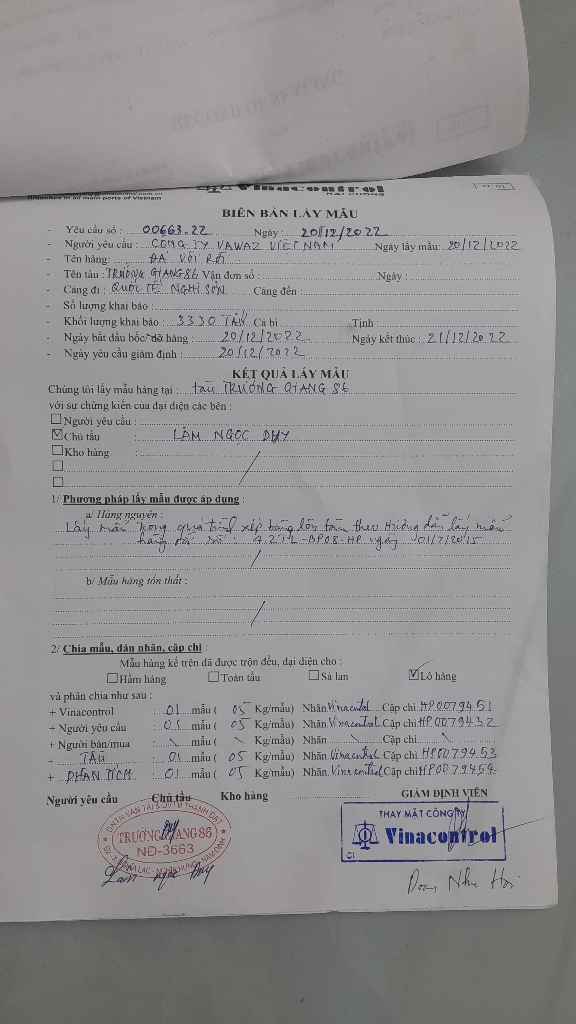 RECORD OF SEALING
Branches in all main ports of Vietnam
Vinacontrol
HAI PHONG
BIÊN BẢN LẤY MẪU
- Yêu cầu số : 00663.22 Ngày : 20/12/2022
- Người yêu cầu : CÔNG TY VAWAZ VIỆT NAM Ngày lấy mẫu: 20/12/2022
- Tên hàng: ĐÁ VÔI RỜI
- Tên tàu : TRƯỜNG GIANG 86 Vận đơn số : Ngày :
- Cảng đi : QUỐC TẾ NGHI SƠN Cảng đến :
- Số lượng khai báo :
- Khối lượng khai báo : 3330 TẤN Cả bì Tịnh :
- Ngày bắt đầu bốc/dỡ hàng : 20/12/2022 Ngày kết thúc : 21/12/2022
- Ngày yêu cầu giám định : 20/12/2022
KẾT QUẢ LẤY MẪU
Chúng tôi lấy mẫu hàng tại : tàu TRƯỜNG GIANG 86
với sự chứng kiến của đại diện các bên :
Người yêu cầu :
Chủ tầu : LÂM NGỌC DUY
Kho hàng :
1/ Phương pháp lấy mẫu được áp dụng :
a/ Hàng nguyên :
Lấy mẫu trong quá trình xếp hàng lên tàm theo Hướng dẫn lấy mẫu
hàng đá số : 4.2TL-BP08-HP ngày 01/7/2015
b/ Mẫu hàng tổn thất :
2/ Chia mẫu, dán nhãn, cặp chì :
Mẫu hàng kể trên đã được trộn đều, đại diện cho :
Hầm hàng Toàn tầu Sà lan Lô hàng
và phân chia như sau :
+ Vinacontrol : 01 mẫu ( 05 Kg/mẫu) Nhãn Vinacontrol Cặp chì HP0079451
+ Người yêu cầu : 01 mẫu ( 05 Kg/mẫu) Nhãn Vinacontrol Cặp chì HP0079452
+ Người bán/mua : mẫu ( Kg/mẫu) Nhãn Cặp chì
+ TÀU : 01 mẫu ( 05 Kg/mẫu) Nhãn Vinacontrol Cặp chì HP0079453
+ PHÂN TÍCH : 01 mẫu ( 05 Kg/mẫu) Nhãn Vinacontrol Cặp chì HP0079454
Người yêu cầu Chủ tầu Kho hàng GIÁM ĐỊNH VIÊN
TRƯỜNG GIANG 86
NĐ-3663
Lâm ngọc Duy
THAY MẶT CÔNG TY
Vinacontrol